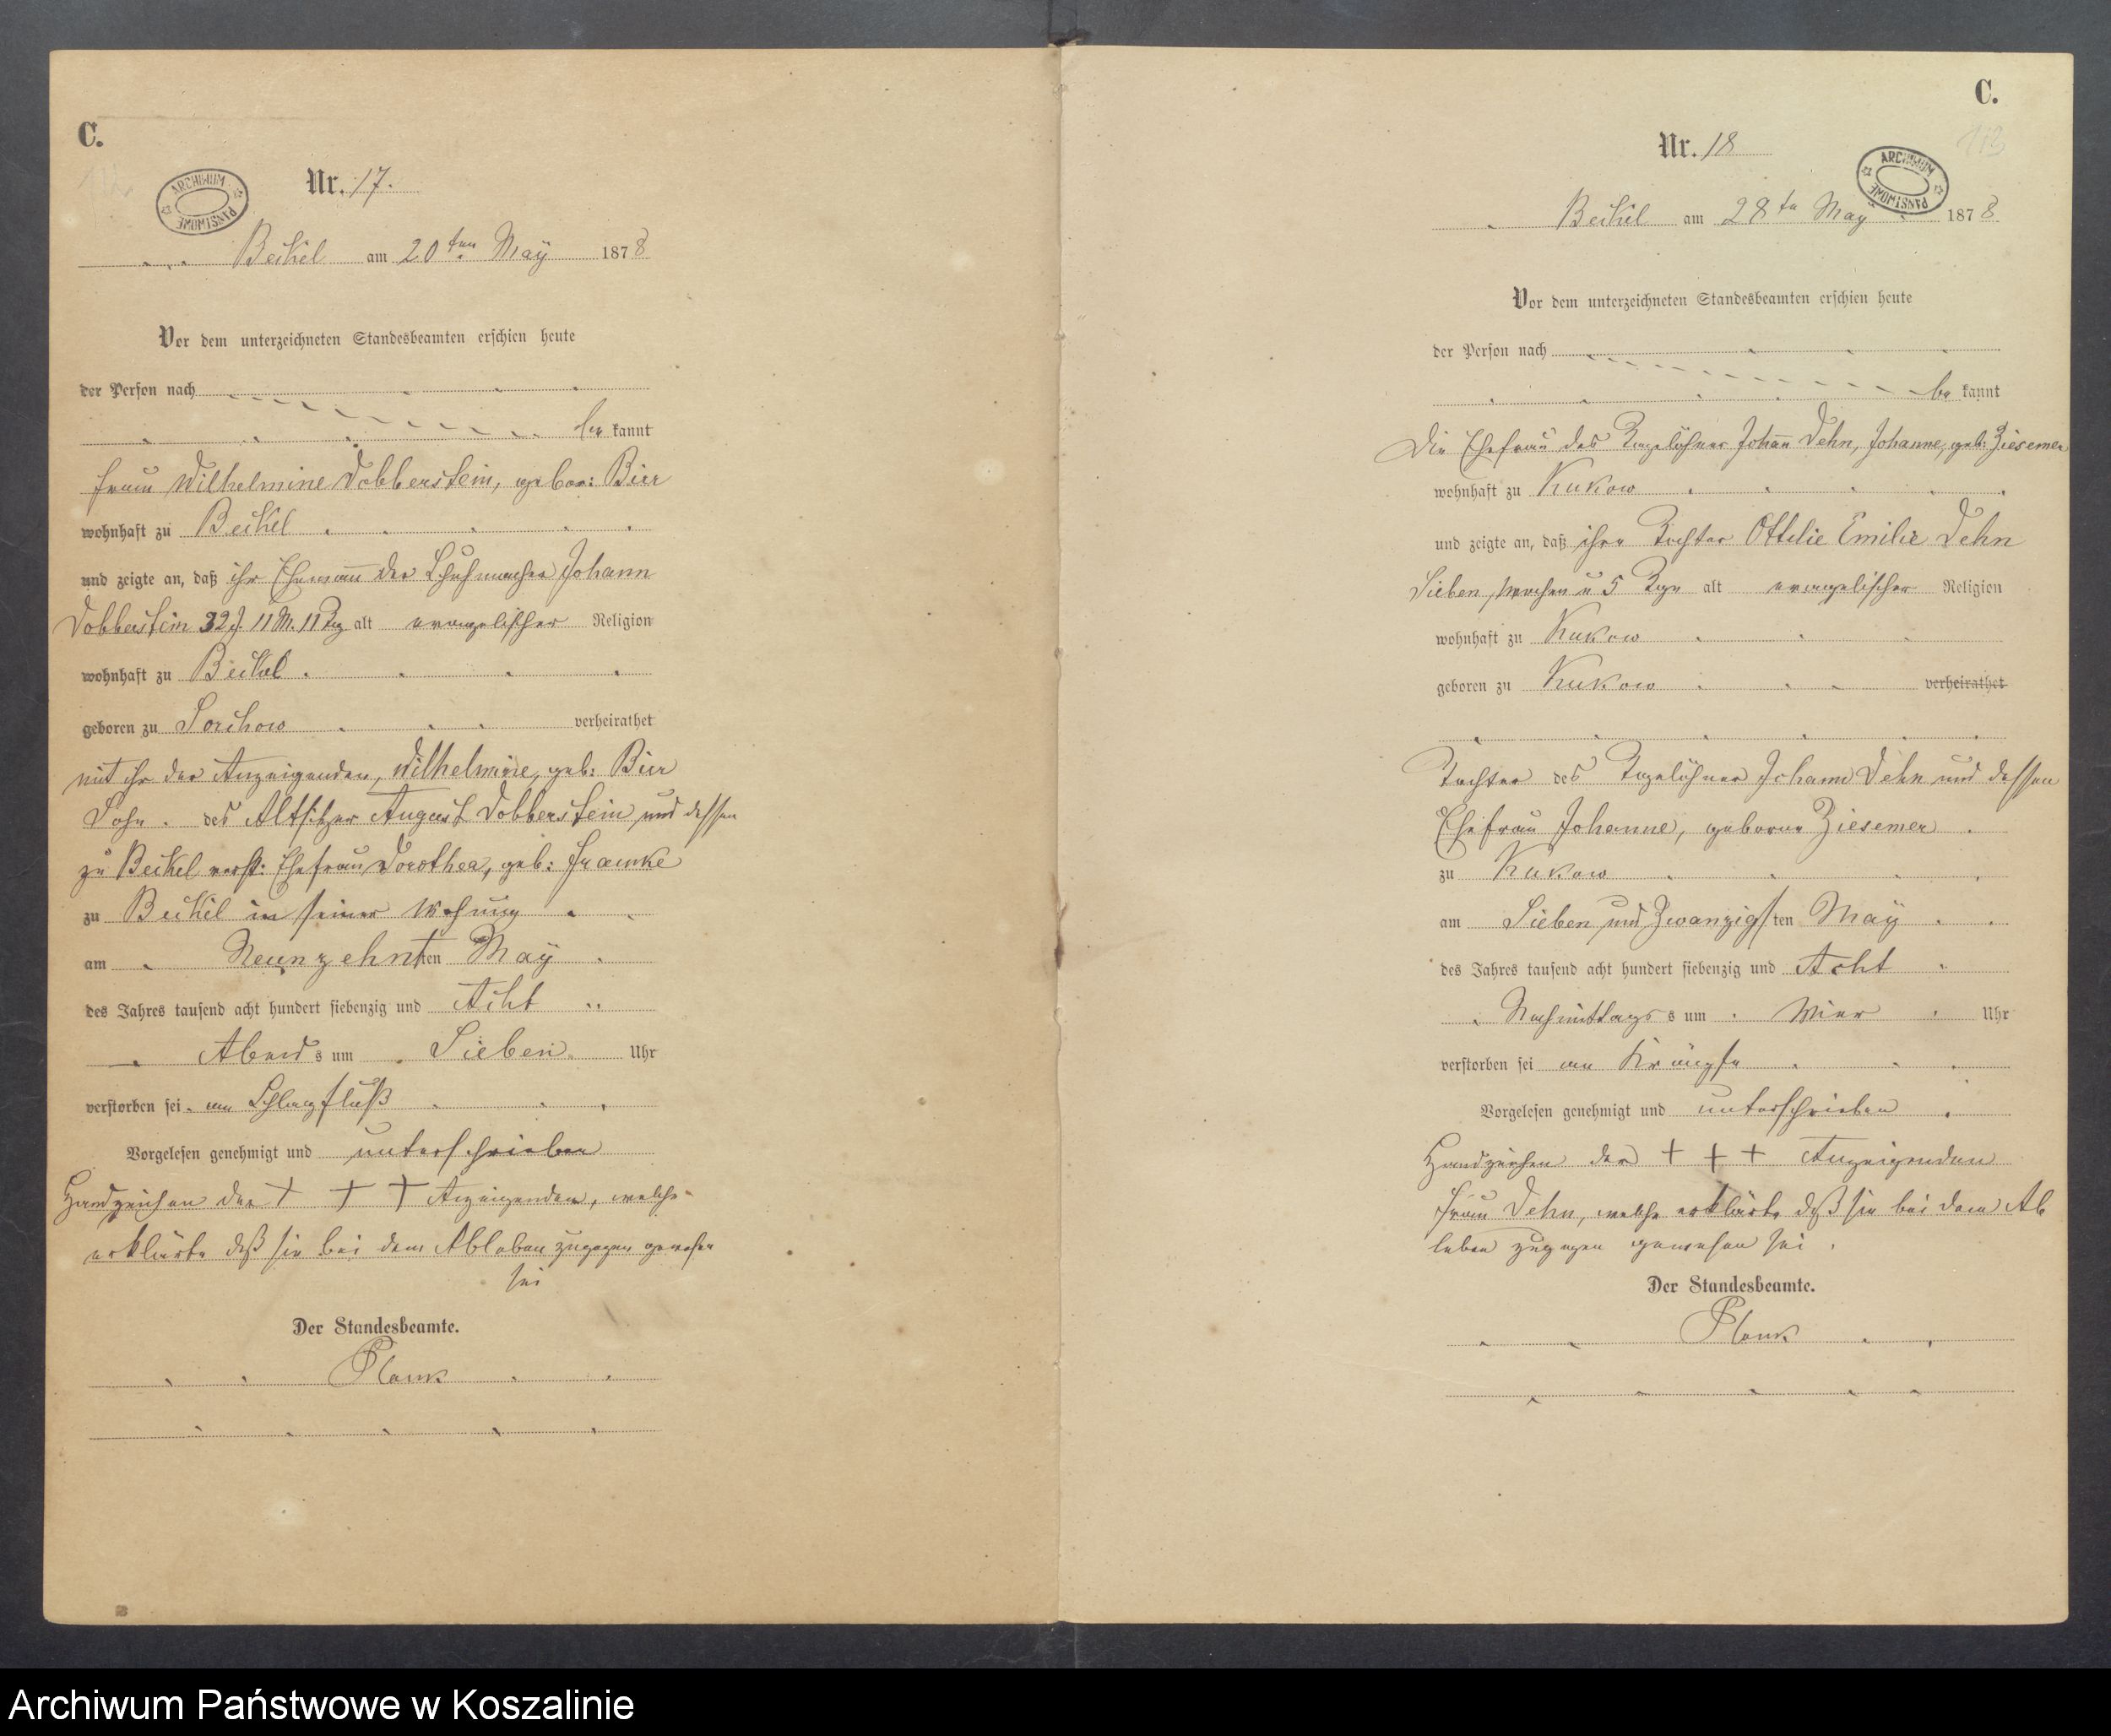 C.
ARCHIWUM PAŃSTWOWE
Nr. 17.
Beckel am 20ten. May 1878
Vor dem unterzeichneten Standesbeamten erschien heute
der Person nach
be kannt
Frau Wilhelmine Dobberstein, gebor: Bier
wohnhaft zu Beckel
und zeigte an, daß ihr Ehemañ der Schuhmacher Johann
Dobberstein 32 J. 11 M. 11 Tag alt evangelischer Religion
wohnhaft zu Beckel
geboren zu Sorchow verheirathet
mit ihr der Anzeigenden, Wilhelmine, geb: Bier
Sohn des Altsitzer August Dobberstein und dessen
zu Beckel verst: Ehefrau Dorothea, geb: Framke
zu Beckel in seiner Wohnung
am Neunzehnten May
des Jahres tausend acht hundert siebenzig und Acht
Abends um Sieben Uhr
verstorben sei an Schlagfluß
Vorgelesen genehmigt und unterschrieben
Handzeichen der + + + Anzeigenden, welche
erklärte daß sie bei dem Ableben zugegen gewesen
sei
Der Standesbeamte.
Plank
C.
113
ARCHIWUM PAŃSTWOWE
Nr. 18
Beckel am 28te May 1878
Vor dem unterzeichneten Standesbeamten erschien heute
der Person nach
be kannt
Die Ehefrau des Tagelöhner Johañ Dehn, Johanne, geb: Ziesemer
wohnhaft zu Kukow
und zeigte an, daß ihre Tochter Ottilie Emilie Dehn
Sieben Wochen u 5 Tge alt evangelischer Religion
wohnhaft zu Kukow
geboren zu Kukow verheirathet
Tochter des Tagelöhner Johann Dehn und dessen
Ehefrau Johanne, geborne Ziesemer
zu Kukow
am Sieben und Zwanzigsten May
des Jahres tausend acht hundert siebenzig und Acht
Nachmittags s um Vier Uhr
verstorben sei an Krämpfe
Vorgelesen genehmigt und unterschrieben
Handzeichen der + + + Anzeigenden
Frau Dehn, welche erklärte daß sie bei dem Ab
leben zugegen gewesen sei.
Der Standesbeamte.
Plank
Archiwum Państwowe w Koszalinie